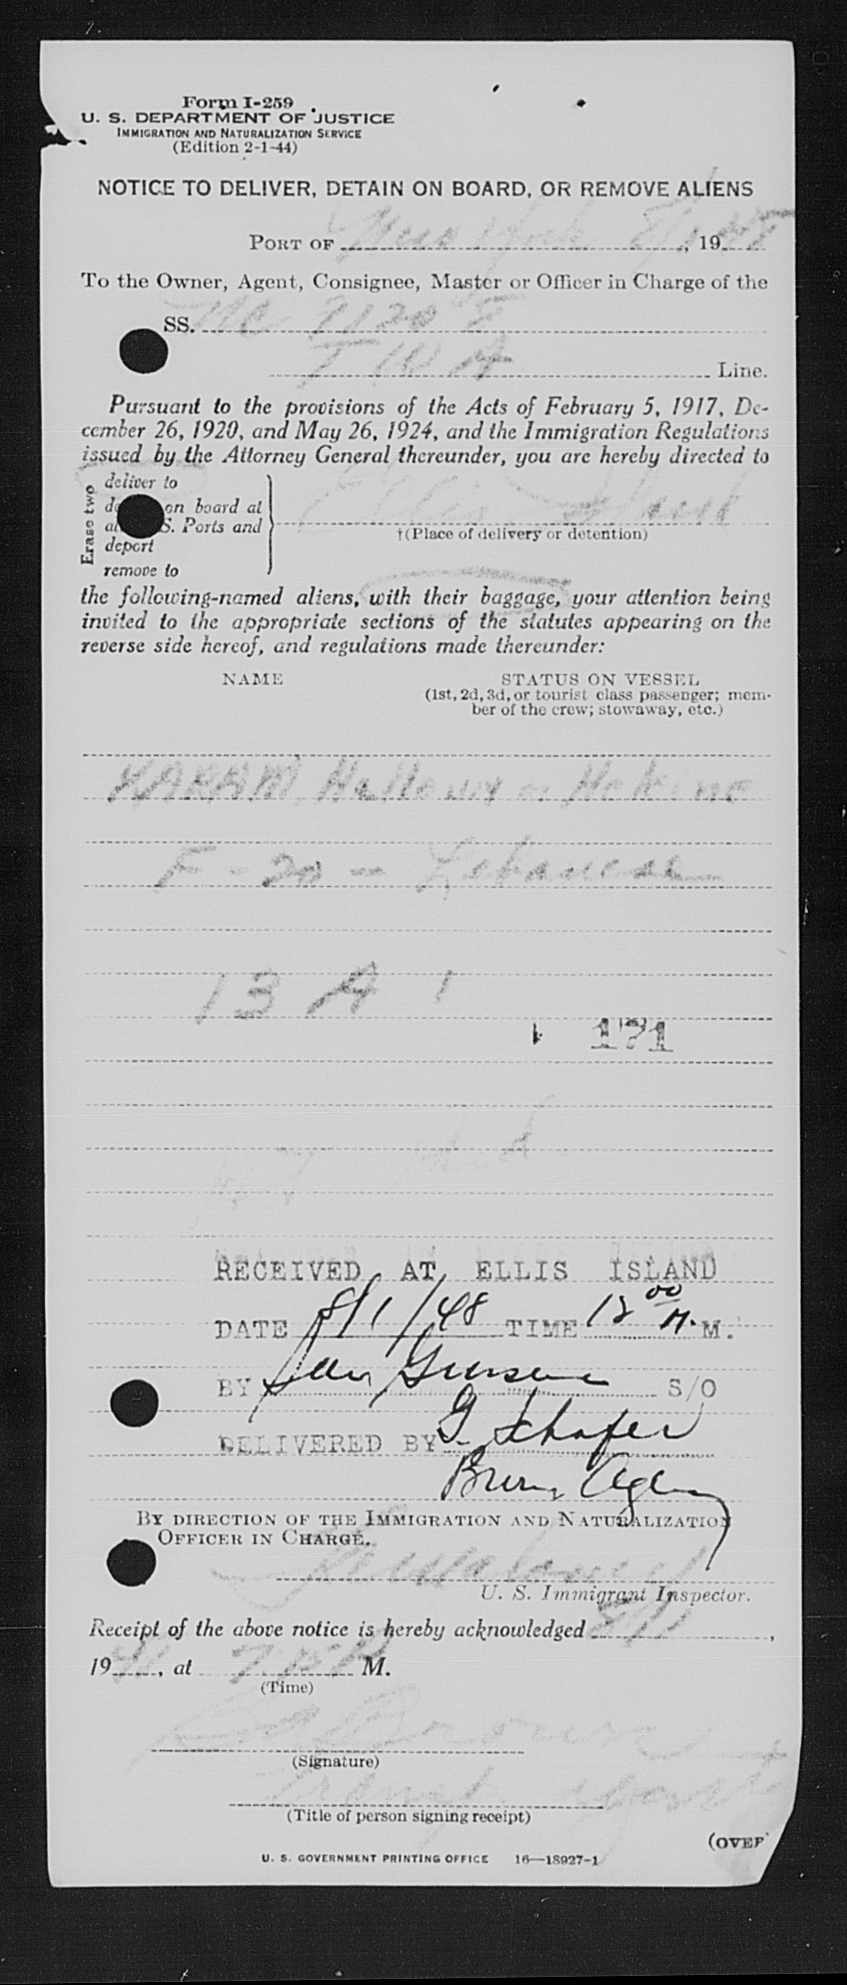 Form I-259
U. S. DEPARTMENT OF JUSTICE
IMMIGRATION AND NATURALIZATION SERVICE
(Edition 2-1-44)
NOTICE TO DELIVER, DETAIN ON BOARD, OR REMOVE ALIENS
PORT OF New York 8/1 , 1948
To the Owner, Agent, Consignee, Master or Officer in Charge of the
SS. NC
T W A Line.
Pursuant to the provisions of the Acts of February 5, 1917, De-
cember 26, 1920, and May 26, 1924, and the Immigration Regulations
issued by the Attorney General thereunder, you are hereby directed to
Erase two
deliver to
on board at
S. Ports and
deport
remove to
Ellis Island
†(Place of delivery or detention)
the following-named aliens, with their baggage, your attention being
invited to the appropriate sections of the statutes appearing on the
reverse side hereof, and regulations made thereunder:
NAME STATUS ON VESSEL
(1st, 2d, 3d, or tourist class passenger; mem-
ber of the crew; stowaway, etc.)
KARAM
F - 20 - Lebanese
13 A 1
171
RECEIVED AT ELLIS ISLAND
DATE 8/1/48 TIME 12 00 A. M.
BY S/O
DELIVERED BY G. Schafer
BY DIRECTION OF THE IMMIGRATION AND NATURALIZATION
OFFICER IN CHARGE.
U. S. Immigrant Inspector.
Receipt of the above notice is hereby acknowledged 8/1 ,
19 , at M.
(Time)
Brown
(Signature)
agent
(Title of person signing receipt)
(OVER
U. S. GOVERNMENT PRINTING OFFICE 16—18927-1